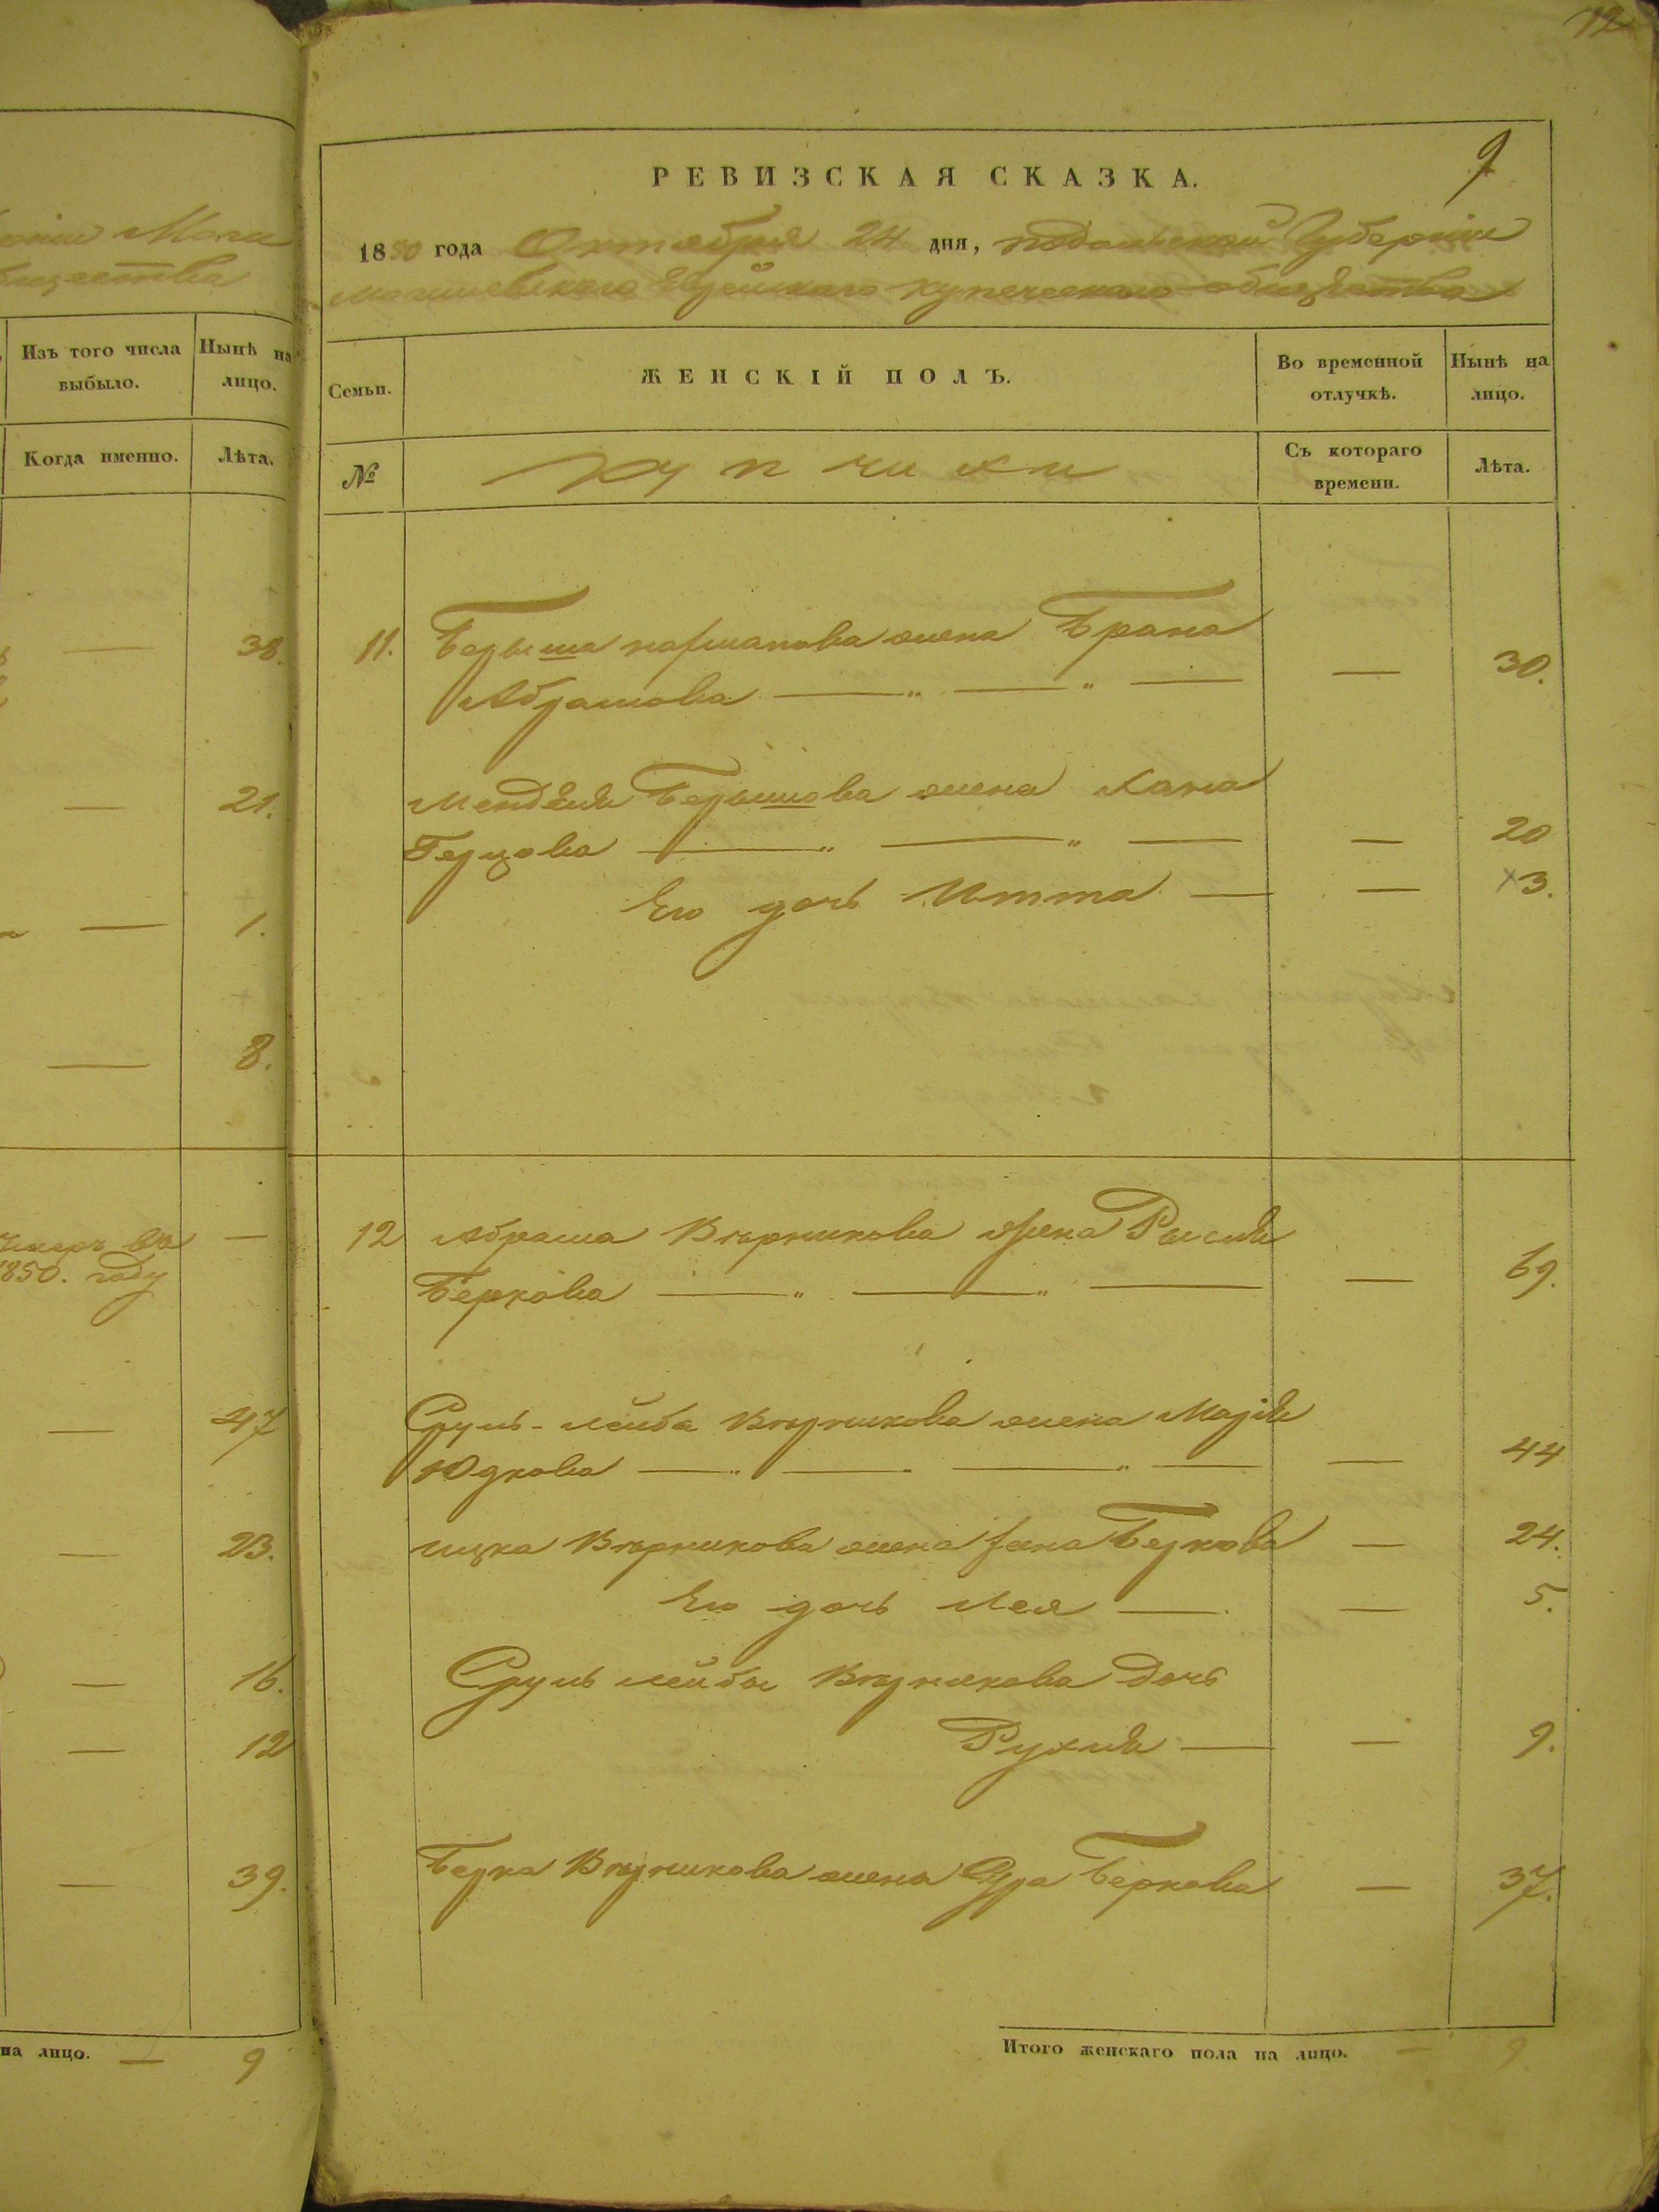 12
9
РЕВИЗСКАЯ СКАЗКА.
1850 года Октября 24 дня, подольской Губерніи
могилевскаго Еврейскаго купеческаго общества
общества
Изъ того числа выбыло.
Нынѣ на лицо.
Когда именно.
Лѣта.
38.
21.
1.
8.
1850. году
47
23.
16.
12
39.
на лицо. — 9
Семьи.
ЖЕНСКІЙ ПОЛЪ.
Во временной отлучкѣ.
Нынѣ на лицо.
№
Купчихи
Съ котораго времени.
Лѣта.
11. Берыша жена Брана
Абрамова — „ — „ — — 30.
Менделя Берышова жена Хана
Герцова — „ — „ — — 20
Его дочь Итта — — 3.
12 Абрама Вюрникова жена Рысля
Беркова — „ — „ — — 69.
Сруль-лейба Вюрникова жена Марія
Юдкова — „ — „ — „ — — 44
ицка Вюрникова жена Беркова — 24.
Его дочь Лея — — 5.
Сруль лейбы Вюрникова дочь
Рухля — — 9.
Берка Вюрникова жена Сура Беркова — 37.
Итого женскаго пола на лицо. — 9